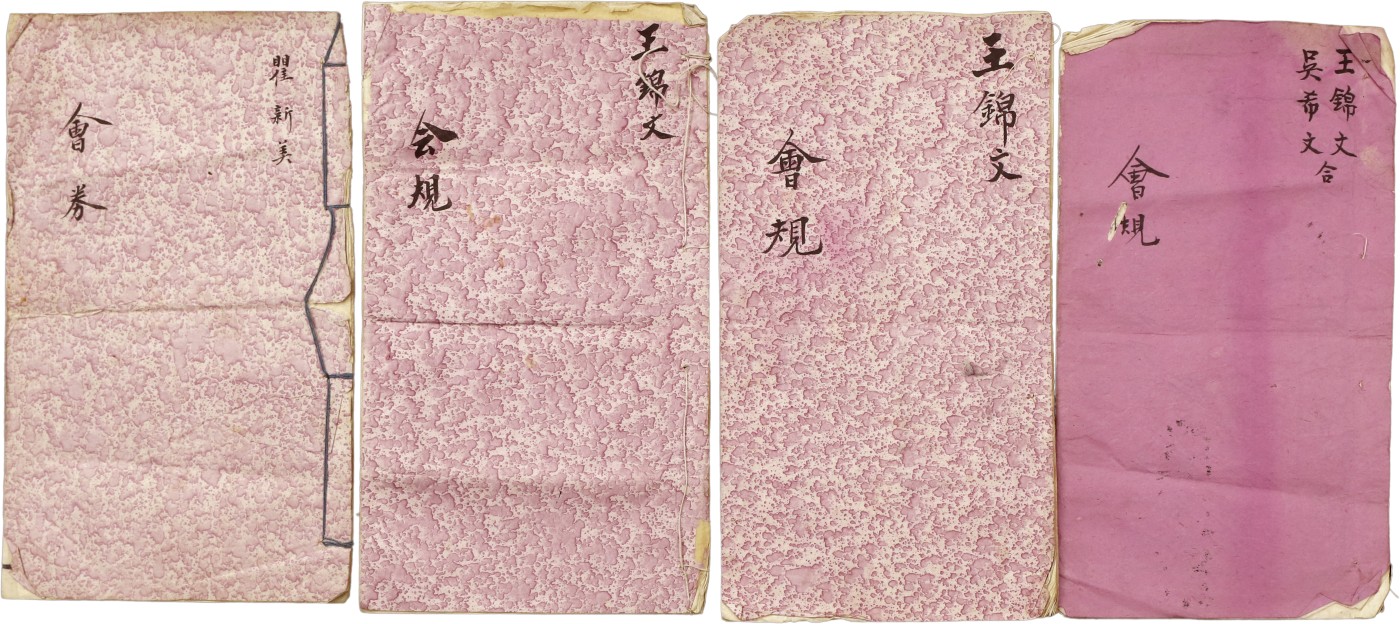 瞿新美
會券
王錦文
会規
王錦文
會規
王錦文
吳希文合
會規